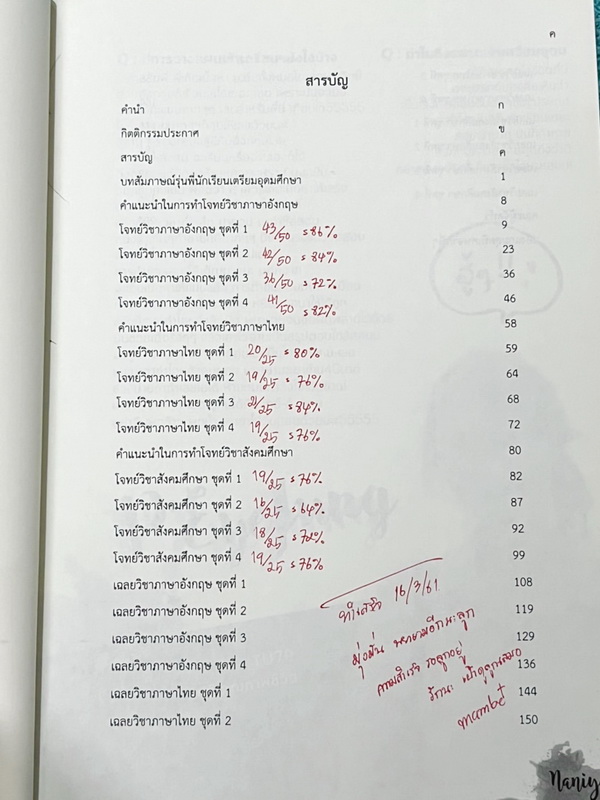 ค
สารบัญ
คำนำ ก
กิตติกรรมประกาศ ข
สารบัญ ค
บทสัมภาษณ์รุ่นพี่นักเรียนเตรียมอุดมศึกษา 1
คำแนะนำในการทำโจทย์วิชาภาษาอังกฤษ 8
โจทย์วิชาภาษาอังกฤษ ชุดที่ 1 43/50 = 86% 9
โจทย์วิชาภาษาอังกฤษ ชุดที่ 2 42/50 = 84% 23
โจทย์วิชาภาษาอังกฤษ ชุดที่ 3 36/50 = 72% 36
โจทย์วิชาภาษาอังกฤษ ชุดที่ 4 41/50 = 82% 46
คำแนะนำในการทำโจทย์วิชาภาษาไทย 58
โจทย์วิชาภาษาไทย ชุดที่ 1 20/25 = 80% 59
โจทย์วิชาภาษาไทย ชุดที่ 2 19/25 = 76% 64
โจทย์วิชาภาษาไทย ชุดที่ 3 21/25 = 84% 68
โจทย์วิชาภาษาไทย ชุดที่ 4 19/25 = 76% 72
คำแนะนำในการทำโจทย์วิชาสังคมศึกษา 80
โจทย์วิชาสังคมศึกษา ชุดที่ 1 19/25 = 76% 82
โจทย์วิชาสังคมศึกษา ชุดที่ 2 16/25 = 64% 87
โจทย์วิชาสังคมศึกษา ชุดที่ 3 18/25 = 72% 92
โจทย์วิชาสังคมศึกษา ชุดที่ 4 19/25 = 76% 99
เฉลยวิชาภาษาอังกฤษ ชุดที่ 1 108
เฉลยวิชาภาษาอังกฤษ ชุดที่ 2 119
เฉลยวิชาภาษาอังกฤษ ชุดที่ 3 129
เฉลยวิชาภาษาอังกฤษ ชุดที่ 4 136
เฉลยวิชาภาษาไทย ชุดที่ 1 144
เฉลยวิชาภาษาไทย ชุดที่ 2 150
ทำเสร็จ 16/3/61
มุ่งมั่น พยายามอีกนะลูก
ความสำเร็จ รอลูกอยู่
รักนะ เฝ้าดูลูกเสมอ